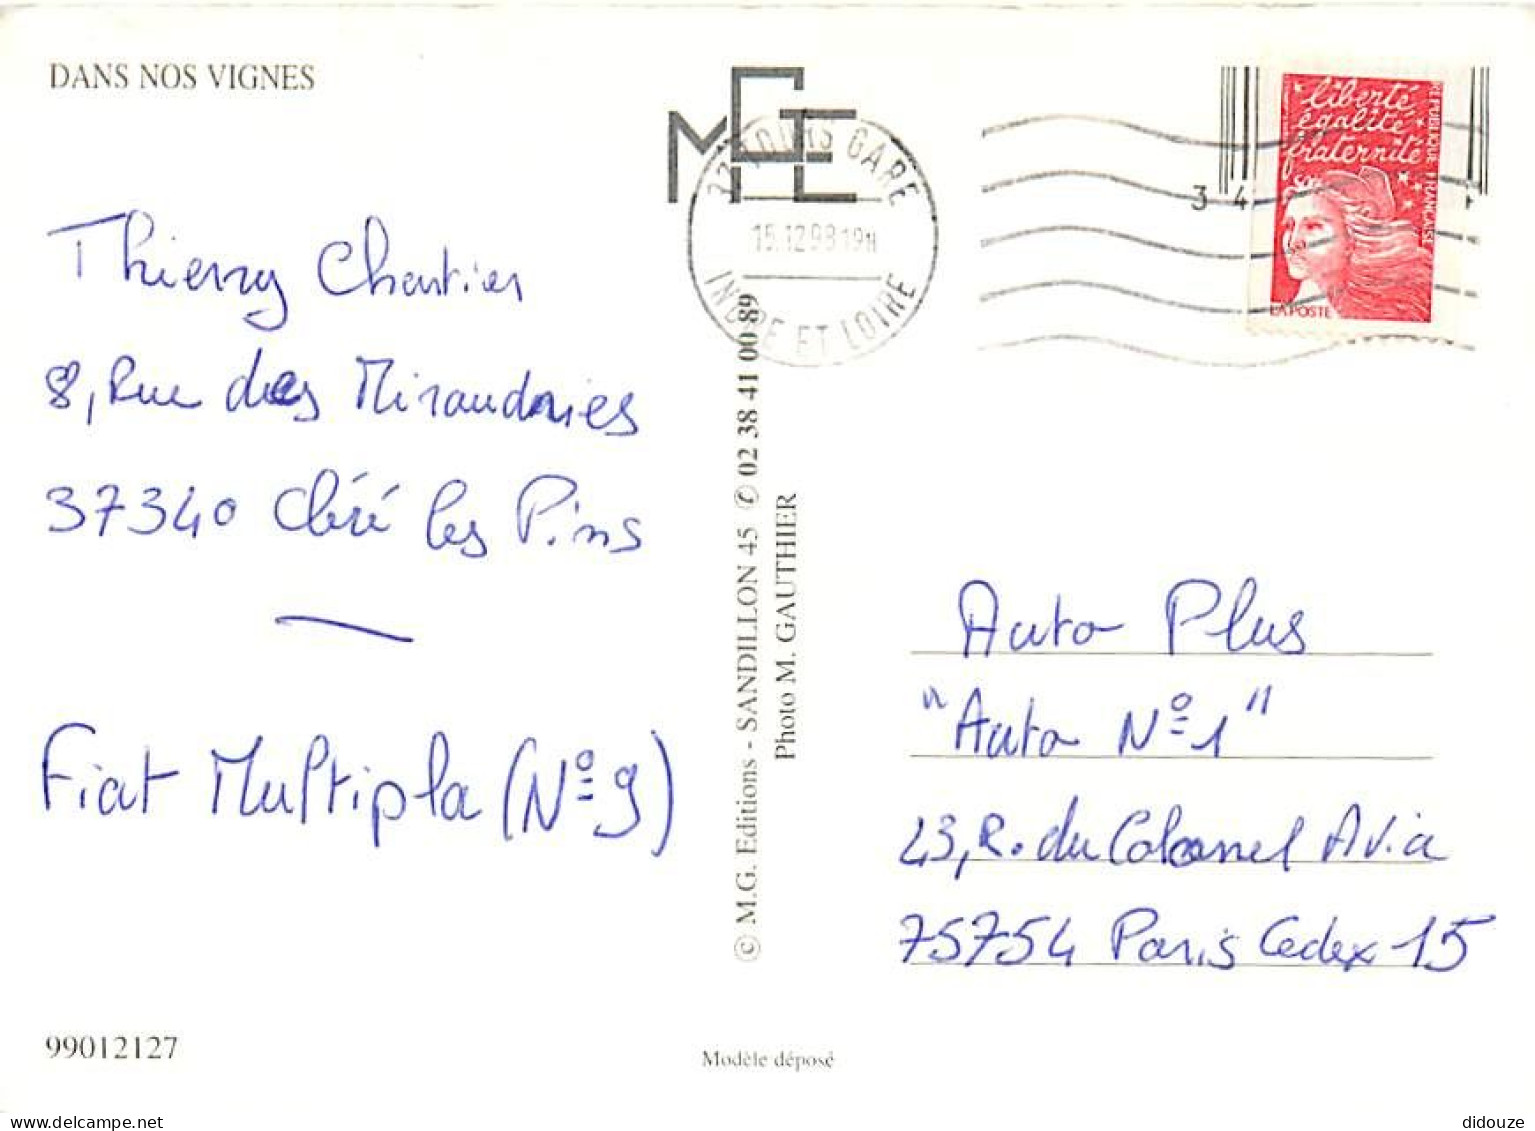 DANS NOS VIGNES
MGE
37 TOURS GARE
15.12.98 19H
INDRE ET LOIRE
3 4
liberté
égalité
fraternité
REPUBLIQUE FRANÇAISE
LA POSTE
Thierry Chartier
8, Rue des Miraudries
37340 Cléré les Pins
Fiat Multipla (N° 9)
© M.G. Editions - SANDILLON 45 ✆ 02 38 41 00 89
Photo M. GAUTHIER
Auto Plus
"Auto N° 1"
43, R. du Colonel Avia
75754 Paris Cedex 15
99012127
Modèle déposé
didouze